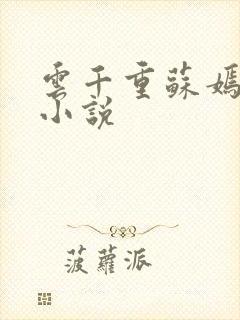 雲千重蘇嫣
小說
菠蘿派